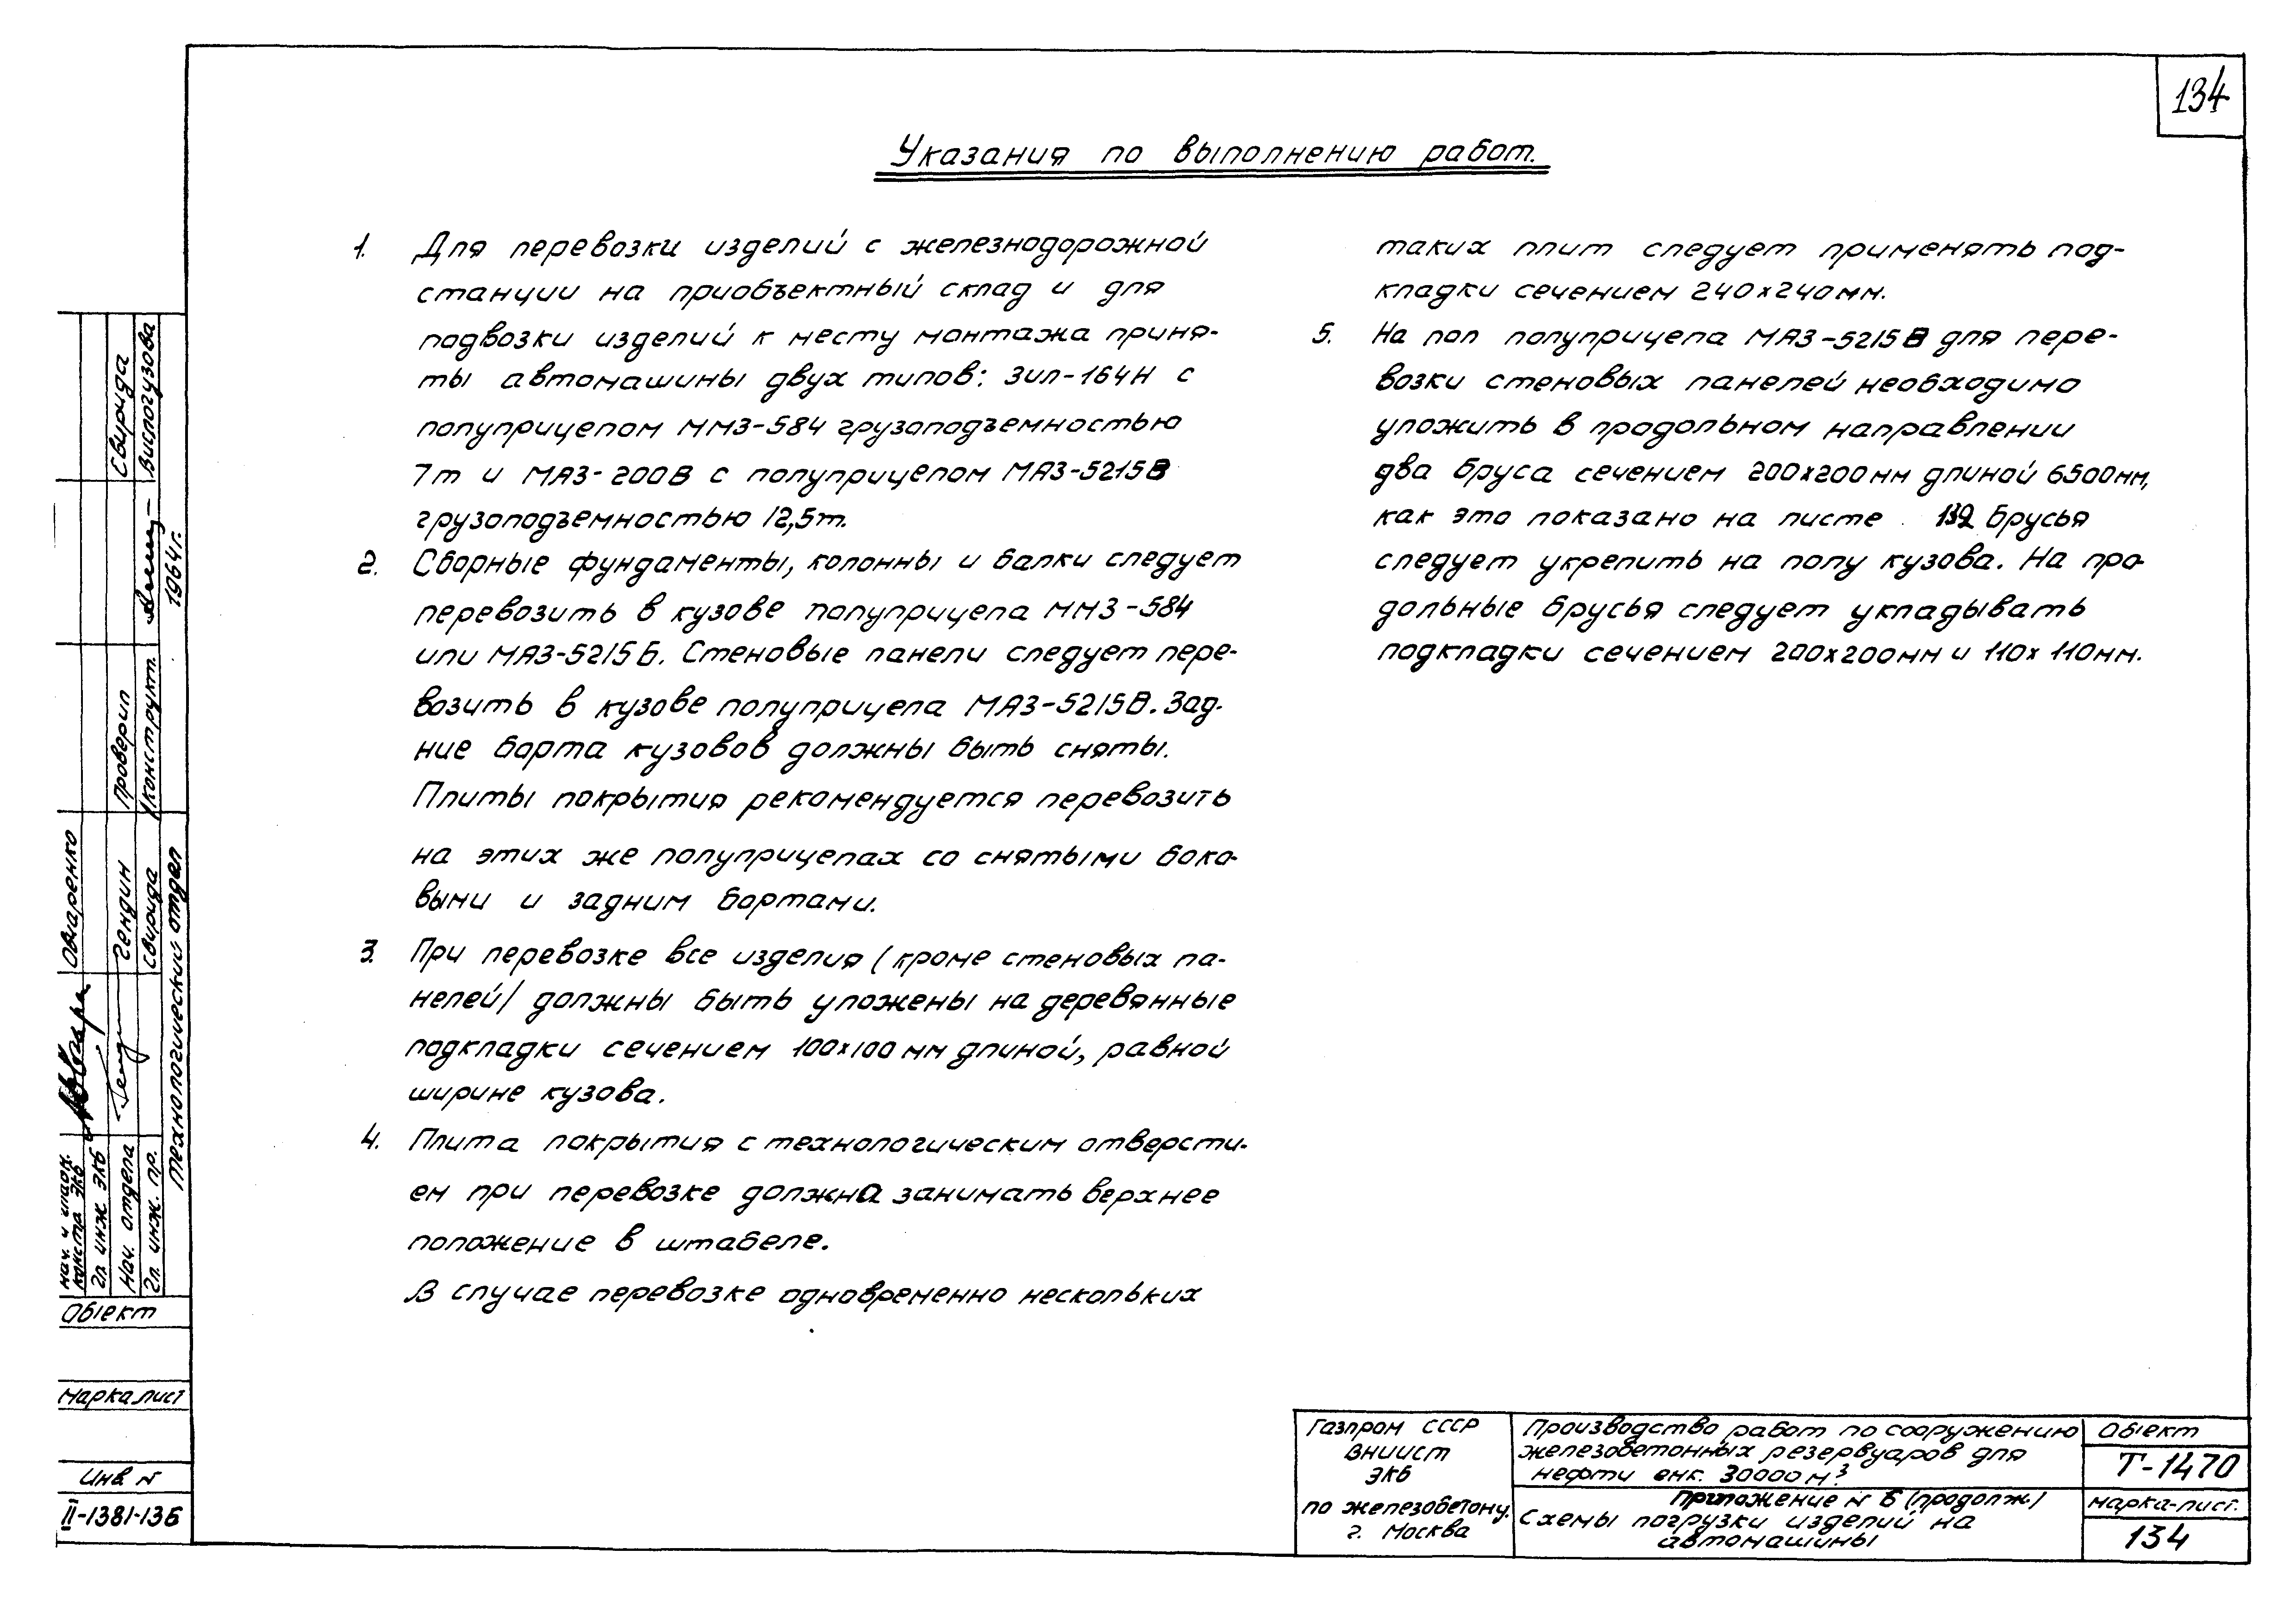 134
Указания по выполнению работ.
1. Для перевозки изделий с железнодорожной
станции на приобъектный склад и для
подвозки изделий к месту монтажа приня-
ты автомашины двух типов: ЗИЛ-164Н с
полуприцепом ММЗ-584 грузоподъемностью
7т и МАЗ-200В с полуприцепом МАЗ-5215В
грузоподъемностью 12,5т.
2. Сборные фундаменты, колонны и балки следует
перевозить в кузове полуприцепа ММЗ-584
или МАЗ-5215Б. Стеновые панели следует пере-
возить в кузове полуприцепа МАЗ-5215В. Зад-
ние борта кузовов должны быть сняты.
Плиты покрытия рекомендуется перевозить
на этих же полуприцепах со снятыми боко-
выми и задним бортами.
3. При перевозке все изделия (кроме стеновых па-
нелей/ должны быть уложены на деревянные
подкладки сечением 100х100 мм длиной, равной
ширине кузова.
4. Плита покрытия с технологическим отверсти-
ем при перевозке должна занимать верхнее
положение в штабеле.
В случае перевозке одновременно нескольких
таких плит следует применять под-
кладки сечением 240х240мм.
5. На пол полуприцепа МАЗ-5215В для пере-
возки стеновых панелей необходимо
уложить в продольном направлении
два бруса сечением 200х200мм длиной 6500мм,
как это показано на листе 132 Брусья
следует укрепить на полу кузова. На про-
дольные брусья следует укладывать
подкладки сечением 200х200мм и 110х110мм.
Газпром СССР
ВНИИСТ
ЭКБ
по железобетону.
г. Москва
Производство работ по сооружению
железобетонных резервуаров для
нефти емк. 30000 м³
Приложение № 6 (продолж.)
Схемы погрузки изделий на
автомашины
Объект
Т-1470
марка-лист.
134
нач. и глав.
конста ЭКБ
Овчаренко
Гл. инж ЭКБ
Нач. отдела
Гендин
Проверил
Свирида
Гл. инж. пр.
Свирида
конструкт.
Вислогузова
технологический отдел
1964г.
Объект
марка лист
Инв №
II-1381-136